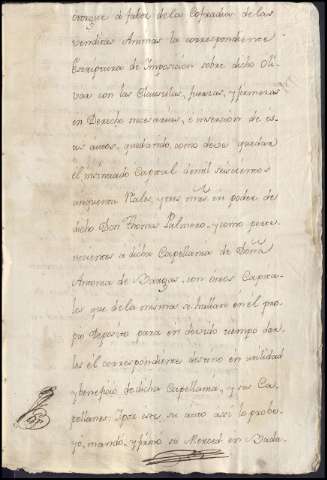 otorgue á fabor de la Cofradia de las
venditas Animas la correspondiente
Escriptura de Imposicion sobre dicho Oli-
var con las Clausulas, fuerzas, y firmezas
en Derecho necesarias, e insercion de es-
tos autos, quedando, como debe quedar
el mencionado Capital de mil seiscientos
cinquenta Rales, y tres mrs. en poder de
dicho Don Thomas Palmero, y como perte-
neciente à dicha Capellania de Doña
Antonia de Bargas, con otros Capita-
les que de la misma se hallan en el pro-
pio Deposito para en devido tiempo dar-
les el correspondiente destino en utilidad
y beneficio de dicha Capellania, y sus Ca-
pellanes: Y por este, su auto assi lo probe-
yo, mandó, y firmó su Merced en Bada-